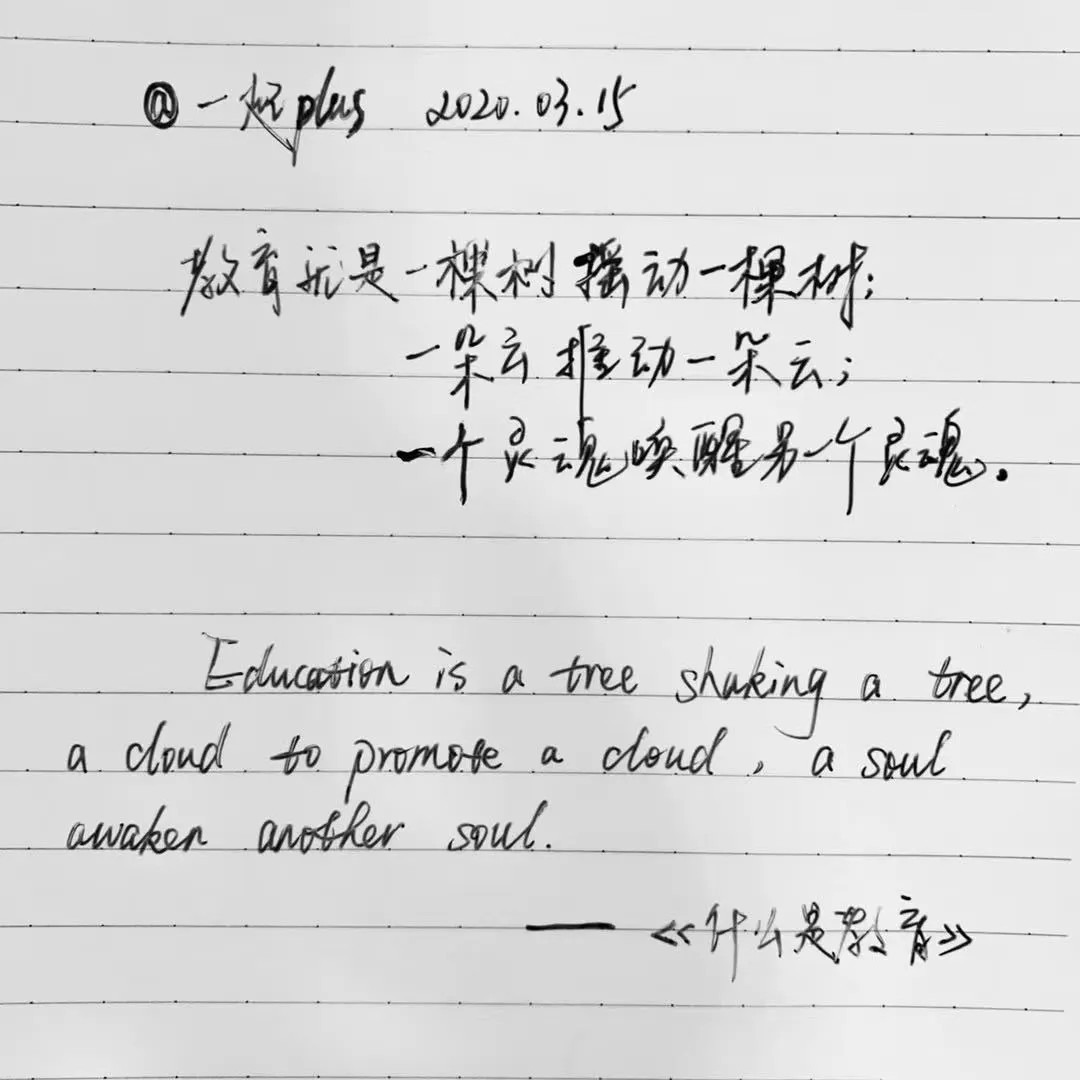 @一起plus 2020.03.15
教育就是一棵树摇动一棵树;
一朵云推动一朵云;
一个灵魂唤醒另一个灵魂。
Education is a tree shaking a tree,
a cloud to promote a cloud, a soul
awaken another soul.
——《什么是教育》